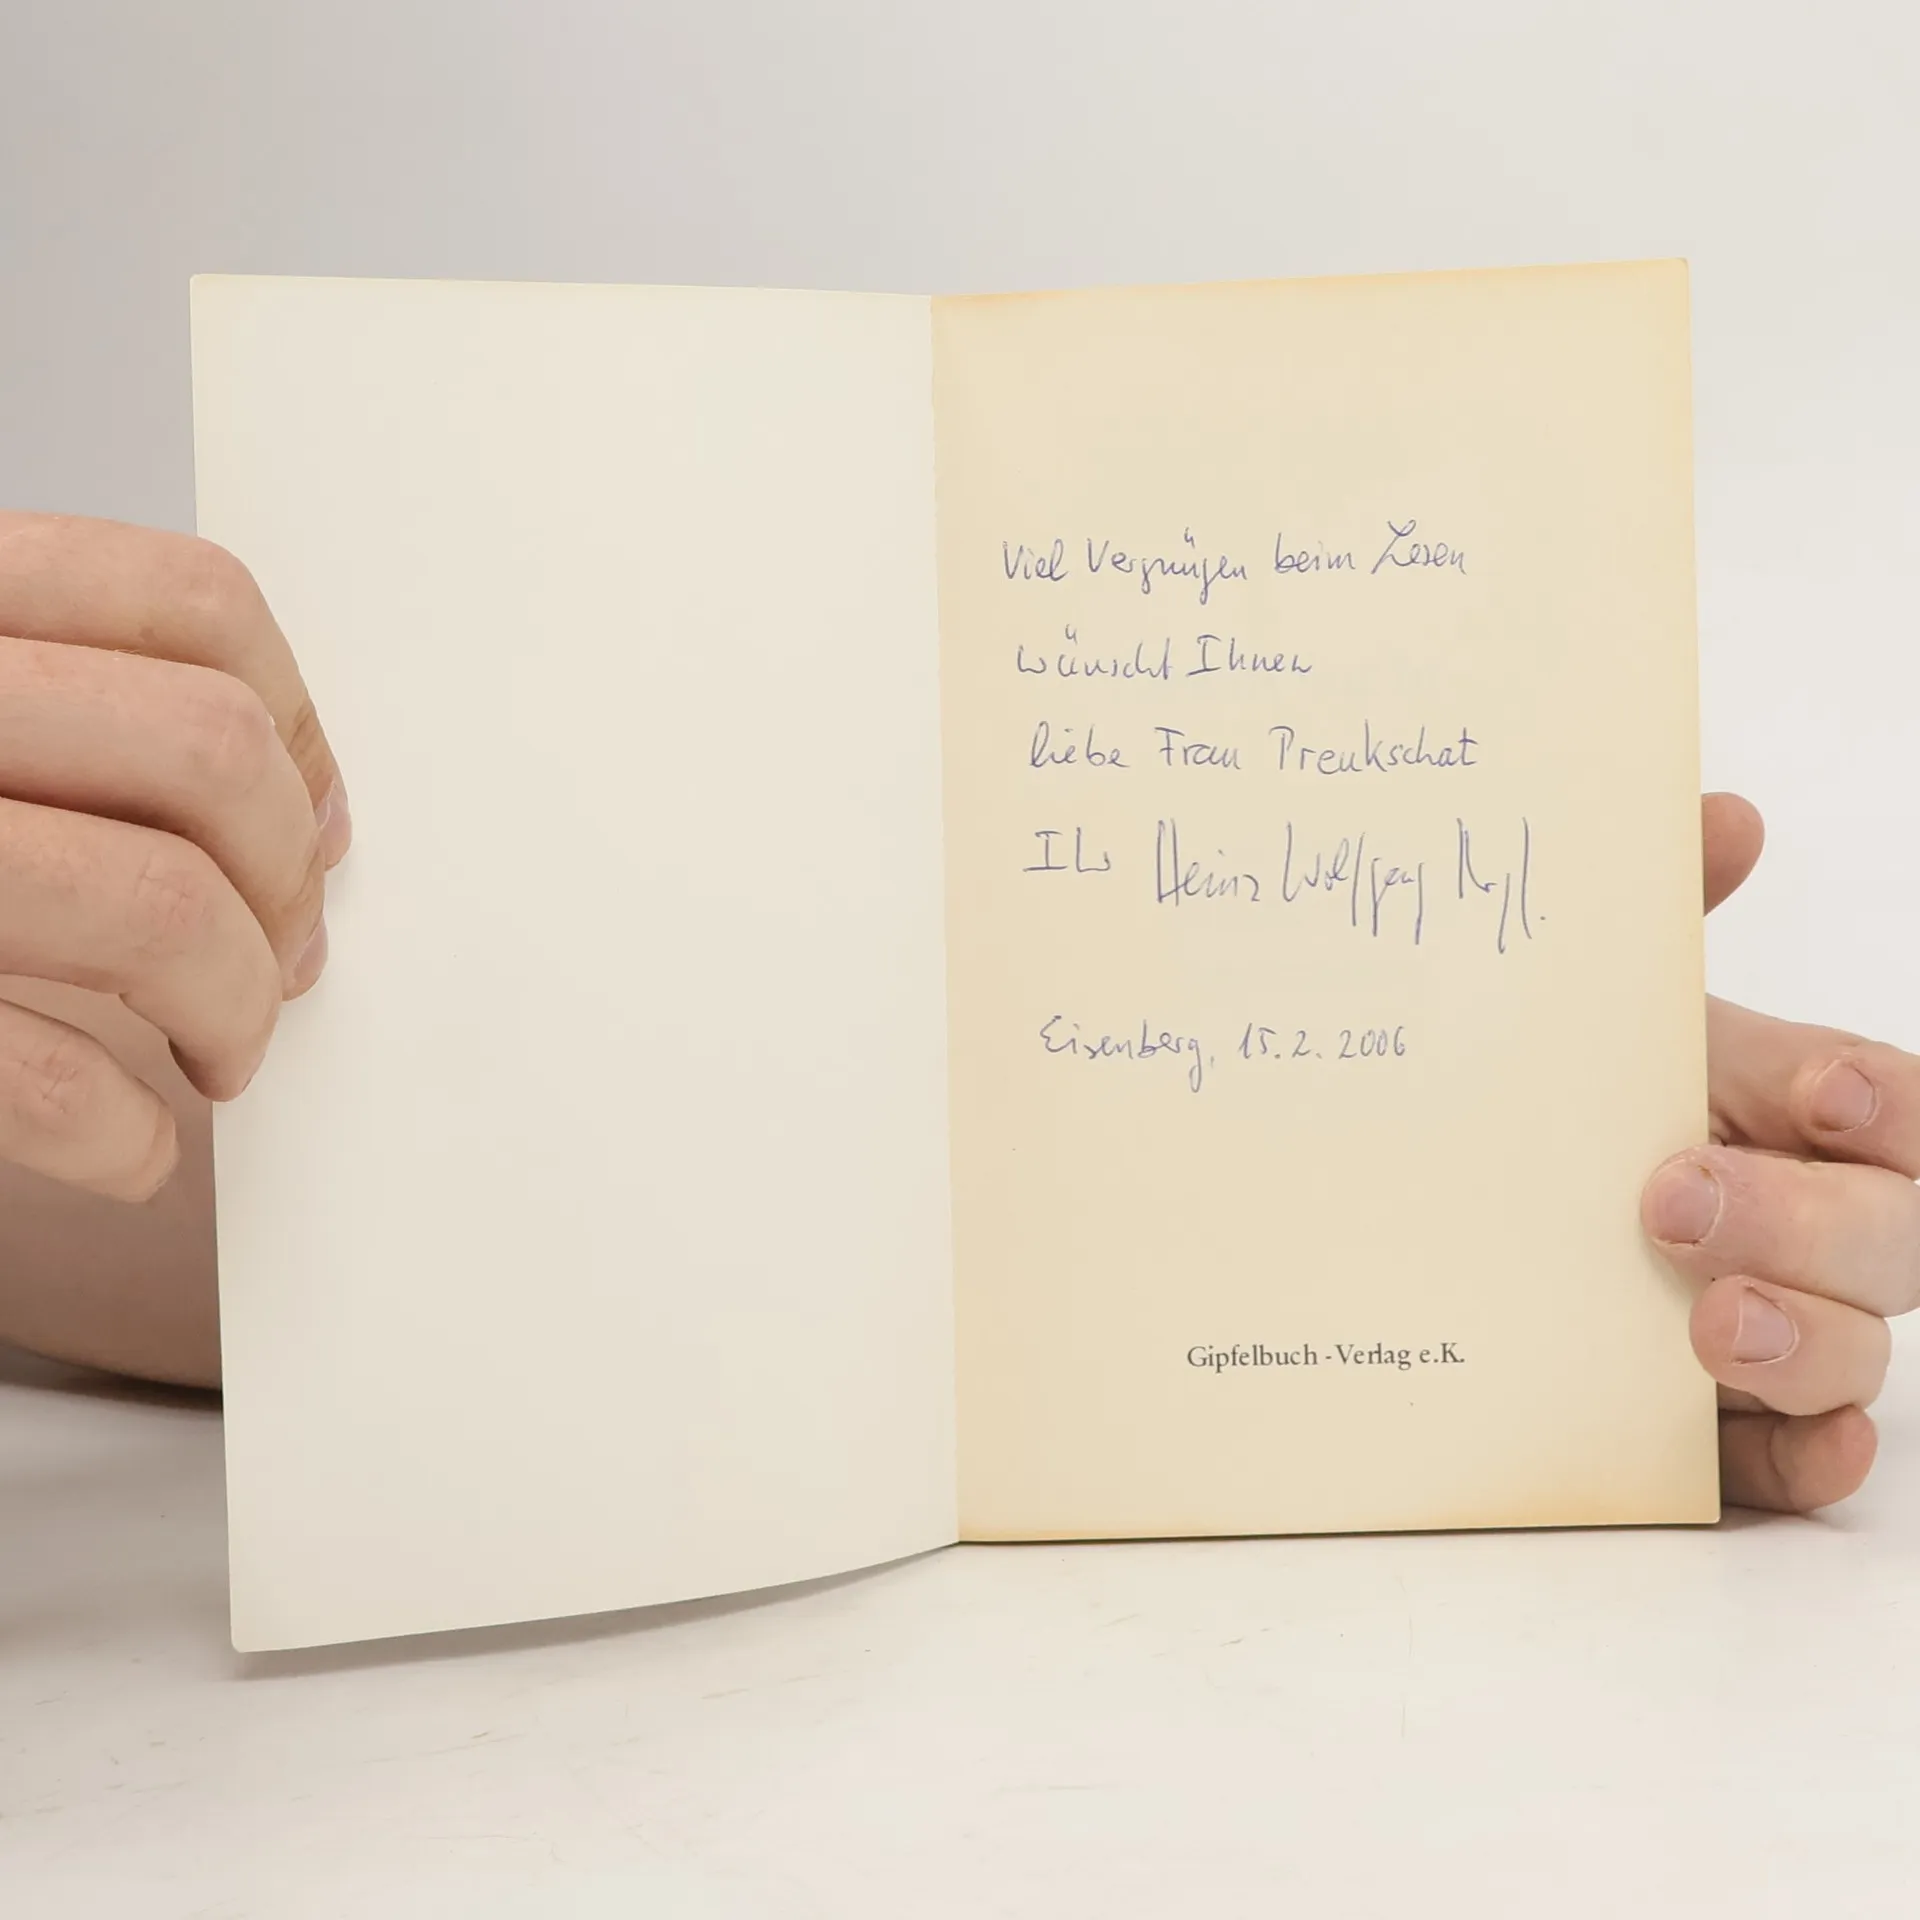 Viel Vergnügen beim Lesen
wünscht Ihnen
liebe Frau Preukschat
Ihr Heinz Wolfgang
Eisenberg, 15.2.2006
Gipfelbuch-Verlag e.K.